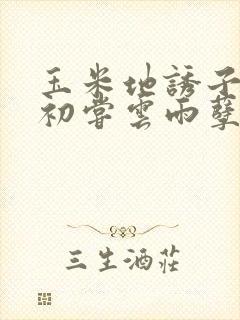 玉米地誘子
初嘗雲雨孽
三生酒莊